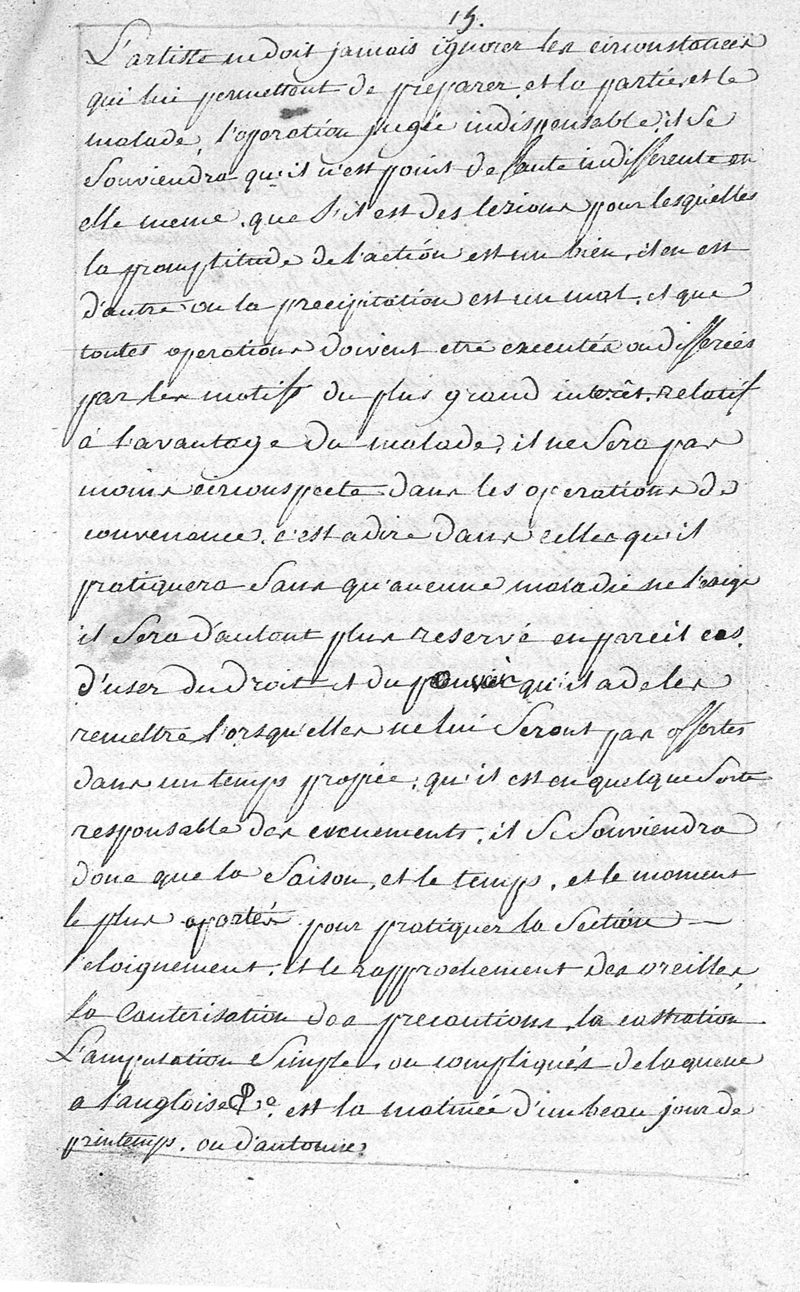 15.
L'artiste ne doit jamais ignorer les circonstances
qui lui permettent de préparer, et la partie, et le
malade, l'operation jugée indispensable, il se
souviendra qu'il n'est point de faute indifferente en
elle meme, que s'il est des lezions pour lesquelles
la promptitude de l'action est un bien, il en est
d'autre ou la precipitation est un mal, et que
toutes operations doivent etre executés ou differeés
par les motifs du plus grand interêt relatif
à l'avantage du malade, il ne sera pas
moins circonspecte dans les operations de
convenance, c'est a dire dans celles qu'il
pratiquera sans qu'aucune maladie ne l'exige
il sera d'autant plus reservé en pareil cas
d'user du droit et du pouvoir qu'il a de les
remettre lorsqu'elles ne lui seront pas offertes
dans un temps propice, qu'il est en quelque sorte
responsable des evenements, il se souviendra
donc que la saison, et le temps, et le moment
le plus pour pratiquer la section
l'eloignement, et le rapprochement des oreilles
la cauterisation des precautions, la castration
L'amputation simple, ou compliqués de la queue
a l'angloise &c. est la matinée d'un beau jour de
printemps, ou d'automne.